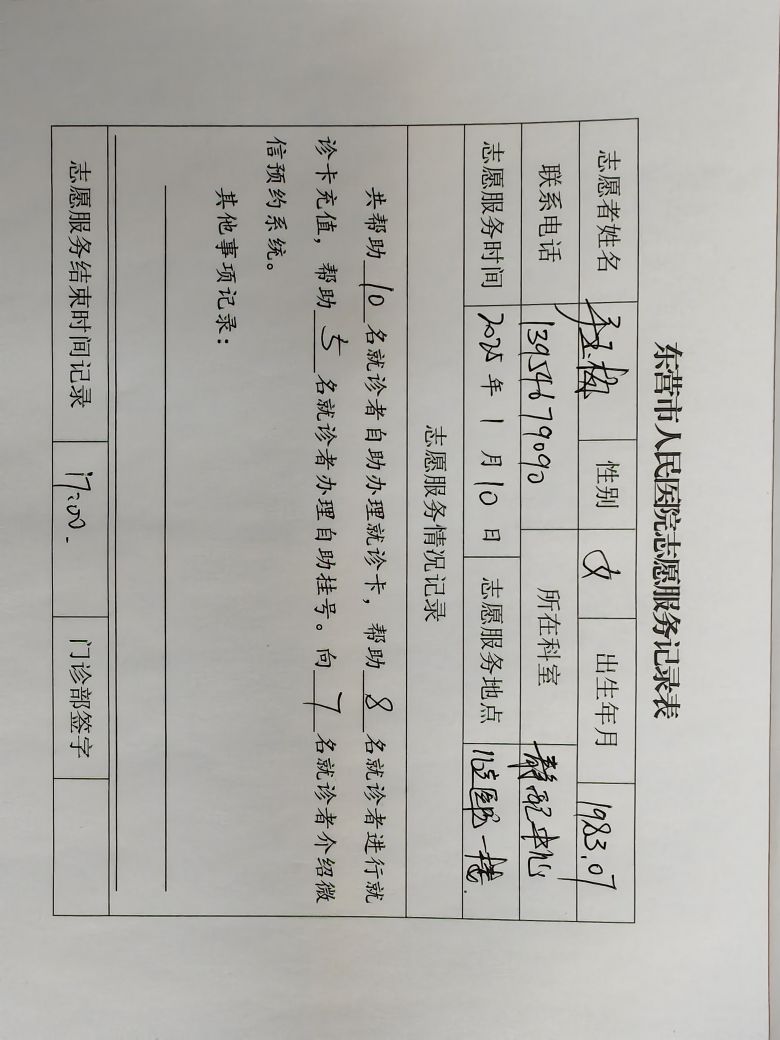 东营市人民医院志愿服务记录表
志愿者姓名 性别 女 出生年月 1983.07
联系电话 13954679090 所在科室 静配中心
志愿服务时间 2025年1月10日 志愿服务地点 一楼
志愿服务情况记录
共帮助10名就诊者自助办理就诊卡，帮助8名就诊者进行就
诊卡充值，帮助5名就诊者办理自助挂号。向7名就诊者介绍微
信预约系统。
其他事项记录：
志愿服务结束时间记录 17:00. 门诊部签字